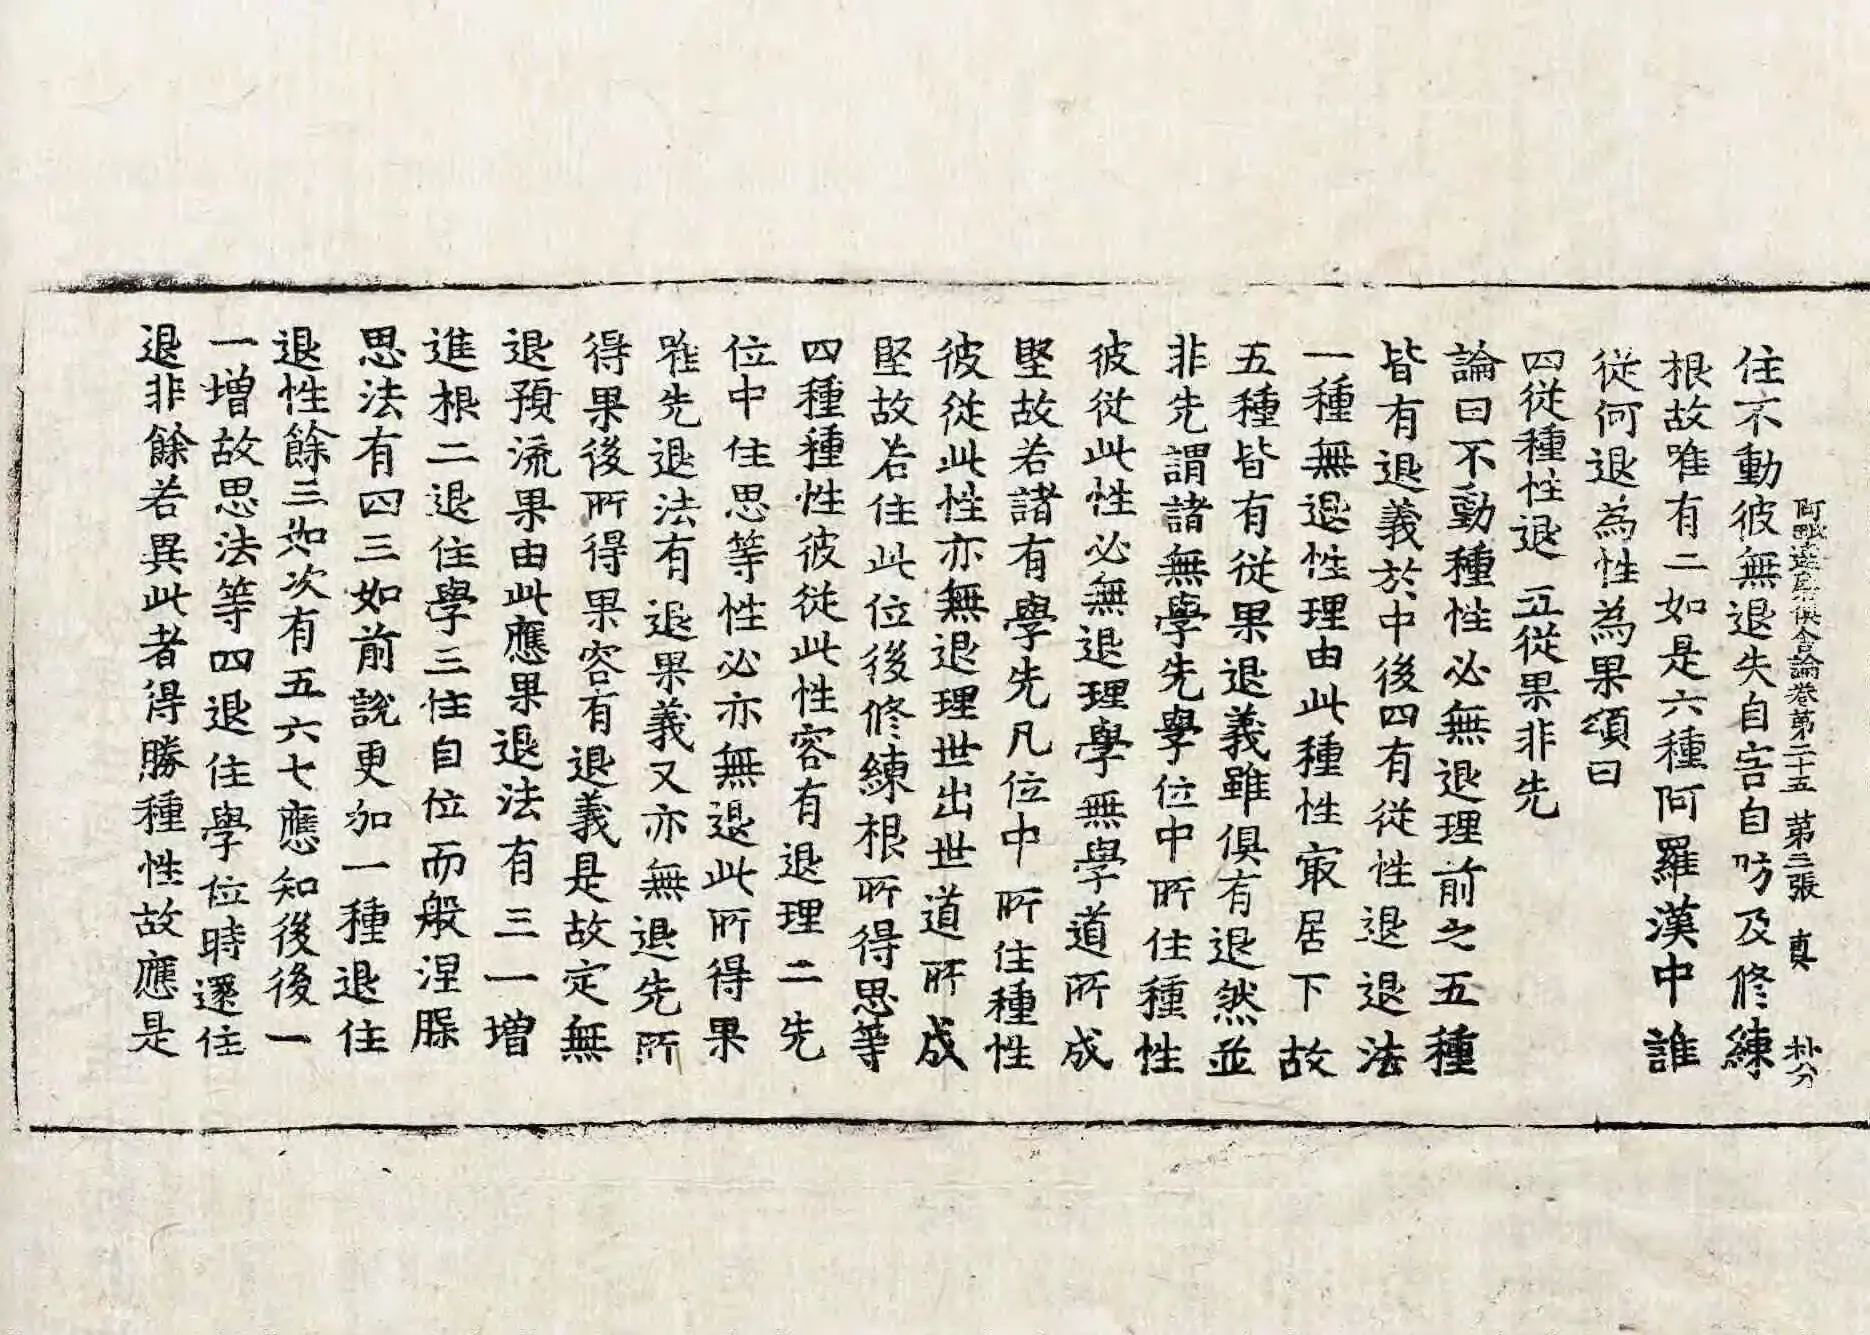 阿毗達磨俱舍論卷第二十五 第三張 真 朴分
住不動彼無退失自害自防及修練
根故唯有二如是六種阿羅漢中誰
從何退為性為果頌曰
四從種性退 五從果非先
論曰不動種性必無退理前之五種
皆有退義於中後四有從性退退法
一種無退性理由此種性㝡居下故
五種皆有從果退義雖俱有退然並
非先謂諸無學先學位中所住種性
彼從此性必無退理學無學道所成
堅故若諸有學先凡位中所住種性
彼從此性亦無退理世出世道所成
堅故若住此位後修練根所得思等
四種種性彼從此性容有退理二先
位中住思等性必亦無退此所得果
唯先退法有退果義又亦無退先所
得果後所得果容有退義是故定無
退預流果由此應果退法有三一增
進根二退住學三住自位而般涅槃
思法有四三如前說更加一種退住
退性餘三如次有五六七應知後後一
一增故思法等四退住學位時還住
退非餘若異此者得勝種性故應是